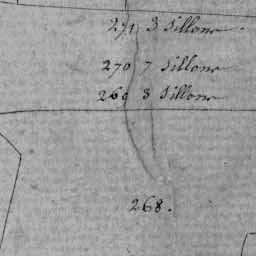 271 3 Sillons
270 7 Sillons
269 3 Sillons
268.